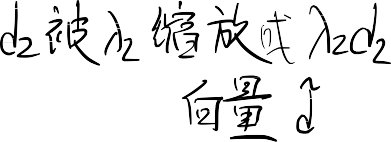 d₂被λ₂缩放成λ₂d₂
向量 d⃗